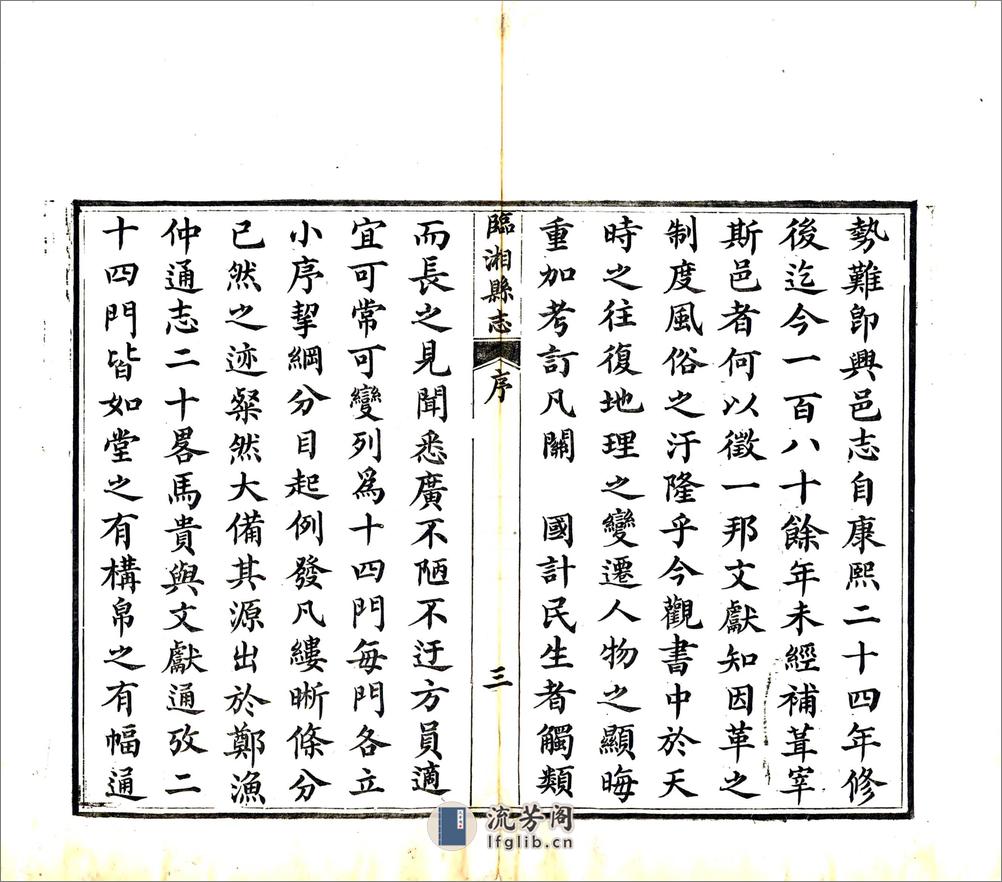 勢難卽興邑志自康熙二十四年修
後迄今一百八十餘年未經補葺宰
斯邑者何以徵一邦文獻知因革之
制度風俗之汙隆乎今觀書中於天
時之往復地理之變遷人物之顯晦
重加考訂凡關　國計民生者觸類
臨湘縣志　序　三
而長之見聞悉廣不陋不迂方員適
宜可常可變列爲十四門每門各立
小序挈綱分目起例發凡縷晰條分
已然之迹粲然大備其源出於鄭漁
仲通志二十畧馬貴與文獻通攷二
十四門皆如堂之有構帛之有幅通
流芳阁
lfglib.cn